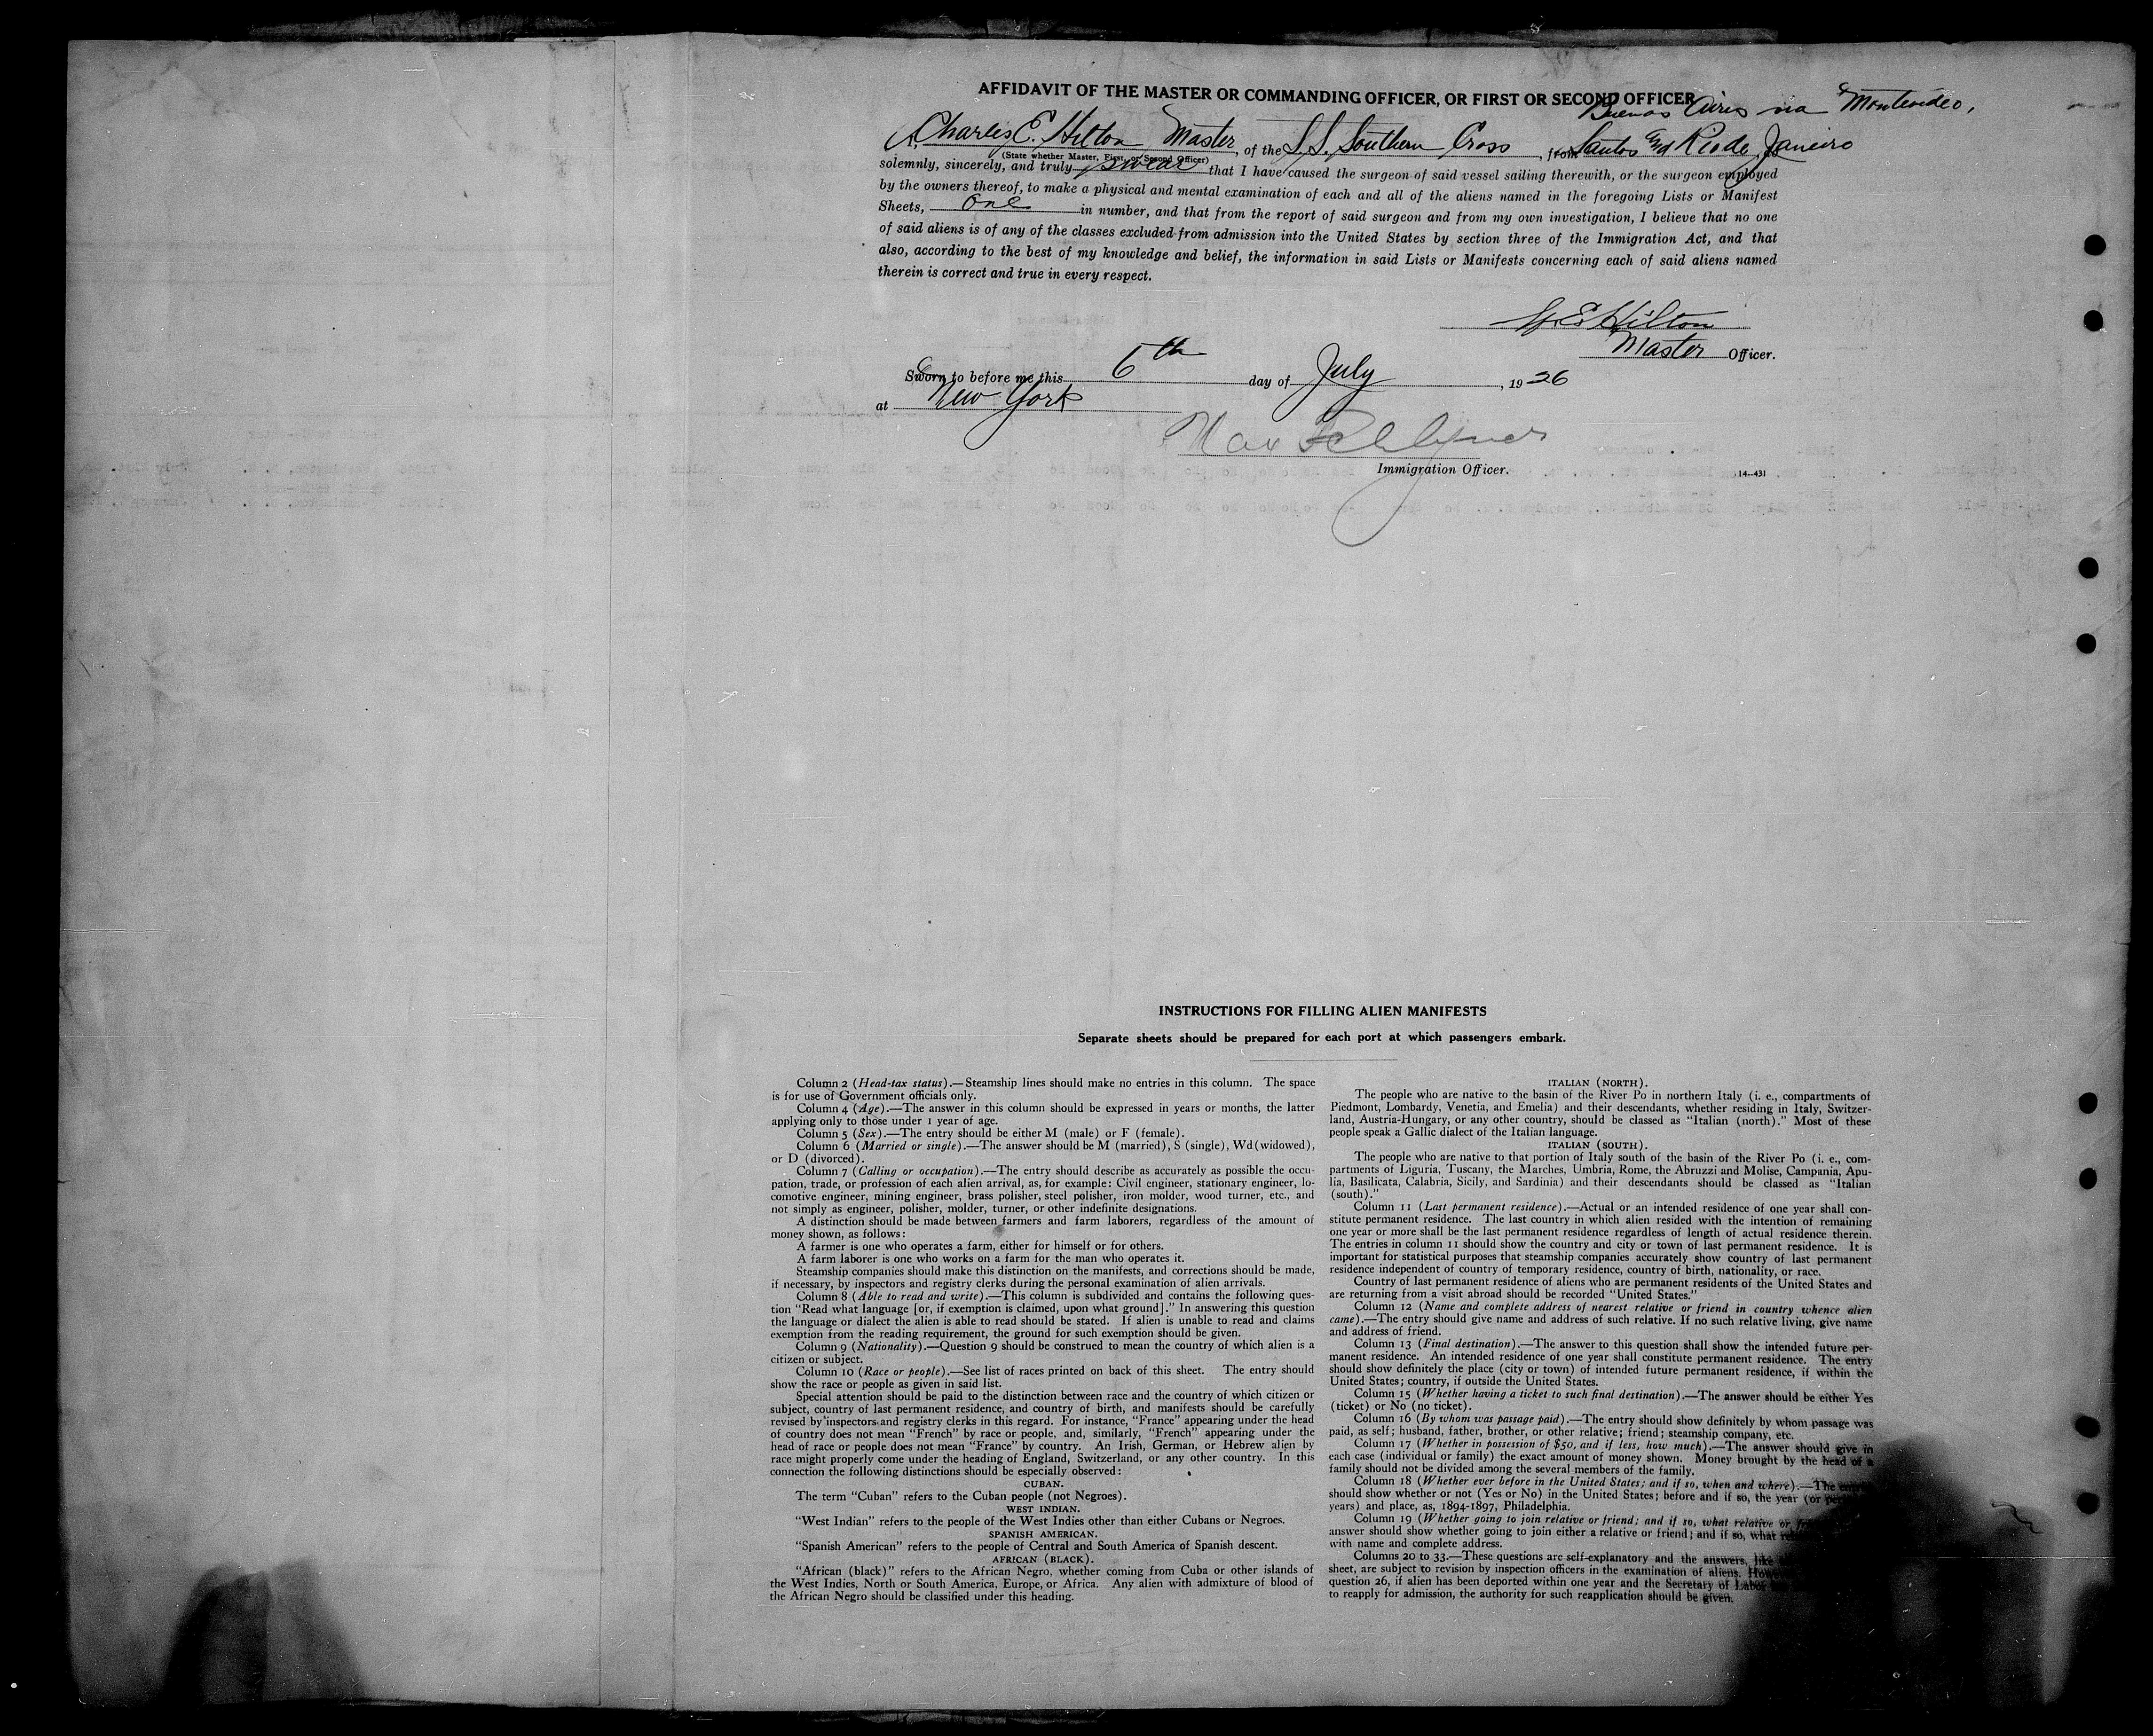 AFFIDAVIT OF THE MASTER OR COMMANDING OFFICER, OR FIRST OR SECOND OFFICER
Buenos Aires via Montevideo,
I, Charles E. Hilton Master, of the S.S. Southern Cross, from Santos and Rio de Janeiro
(State whether Master, First, or Second Officer)
solemnly, sincerely, and truly swear that I have caused the surgeon of said vessel sailing therewith, or the surgeon employed
by the owners thereof, to make a physical and mental examination of each and all of the aliens named in the foregoing Lists or Manifest
Sheets, one in number, and that from the report of said surgeon and from my own investigation, I believe that no one
of said aliens is of any of the classes excluded from admission into the United States by section three of the Immigration Act, and that
also, according to the best of my knowledge and belief, the information in said Lists or Manifests concerning each of said aliens named
therein is correct and true in every respect.
Hilton
Master Officer.
Sworn to before me this 6th day of July, 1926
at New York
Max
Immigration Officer.
14-431
INSTRUCTIONS FOR FILLING ALIEN MANIFESTS
Separate sheets should be prepared for each port at which passengers embark.
Column 2 (Head-tax status).—Steamship lines should make no entries in this column. The space
is for use of Government officials only.
Column 4 (Age).—The answer in this column should be expressed in years or months, the latter
applying only to those under 1 year of age.
Column 5 (Sex).—The entry should be either M (male) or F (female).
Column 6 (Married or single).—The answer should be M (married), S (single), Wd (widowed),
or D (divorced).
Column 7 (Calling or occupation).—The entry should describe as accurately as possible the occu-
pation, trade, or profession of each alien arrival, as, for example: Civil engineer, stationary engineer, lo-
comotive engineer, mining engineer, brass polisher, steel polisher, iron molder, wood turner, etc., and
not simply as engineer, polisher, molder, turner, or other indefinite designations.
A distinction should be made between farmers and farm laborers, regardless of the amount of
money shown, as follows:
A farmer is one who operates a farm, either for himself or for others.
A farm laborer is one who works on a farm for the man who operates it.
Steamship companies should make this distinction on the manifests, and corrections should be made,
if necessary, by inspectors and registry clerks during the personal examination of alien arrivals.
Column 8 (Able to read and write).—This column is subdivided and contains the following ques-
tion "Read what language [or, if exemption is claimed, upon what ground]." In answering this question
the language or dialect the alien is able to read should be stated. If alien is unable to read and claims
exemption from the reading requirement, the ground for such exemption should be given.
Column 9 (Nationality).—Question 9 should be construed to mean the country of which alien is a
citizen or subject.
Column 10 (Race or people).—See list of races printed on back of this sheet. The entry should
show the race or people as given in said list.
Special attention should be paid to the distinction between race and the country of which citizen or
subject, country of last permanent residence, and country of birth, and manifests should be carefully
revised by inspectors and registry clerks in this regard. For instance, "France" appearing under the head
of country does not mean "French" by race or people, and, similarly, "French" appearing under the
head of race or people does not mean "France" by country. An Irish, German, or Hebrew alien by
race might properly come under the heading of England, Switzerland, or any other country. In this
connection the following distinctions should be especially observed:
CUBAN.
The term "Cuban" refers to the Cuban people (not Negroes).
WEST INDIAN.
"West Indian" refers to the people of the West Indies other than either Cubans or Negroes.
SPANISH AMERICAN.
"Spanish American" refers to the people of Central and South America of Spanish descent.
AFRICAN (BLACK).
"African (black)" refers to the African Negro, whether coming from Cuba or other islands of
the West Indies, North or South America, Europe, or Africa. Any alien with admixture of blood of
the African Negro should be classified under this heading.
ITALIAN (NORTH).
The people who are native to the basin of the River Po in northern Italy (i. e., compartments of
Piedmont, Lombardy, Venetia, and Emelia) and their descendants, whether residing in Italy, Switzer-
land, Austria-Hungary, or any other country, should be classed as "Italian (north)." Most of these
people speak a Gallic dialect of the Italian language.
ITALIAN (SOUTH).
The people who are native to that portion of Italy south of the basin of the River Po (i. e., com-
partments of Liguria, Tuscany, the Marches, Umbria, Rome, the Abruzzi and Molise, Campania, Apu-
lia, Basilicata, Calabria, Sicily, and Sardinia) and their descendants should be classed as "Italian
(south)."
Column 11 (Last permanent residence).—Actual or an intended residence of one year shall con-
stitute permanent residence. The last country in which alien resided with the intention of remaining
one year or more shall be the last permanent residence regardless of length of actual residence therein.
The entries in column 11 should show the country and city or town of last permanent residence. It is
important for statistical purposes that steamship companies accurately show country of last permanent
residence independent of country of temporary residence, country of birth, nationality, or race.
Country of last permanent residence of aliens who are permanent residents of the United States and
are returning from a visit abroad should be recorded "United States."
Column 12 (Name and complete address of nearest relative or friend in country whence alien
came).—The entry should give name and address of such relative. If no such relative living, give name
and address of friend.
Column 13 (Final destination).—The answer to this question shall show the intended future per-
manent residence. An intended residence of one year shall constitute permanent residence. The entry
should show definitely the place (city or town) of intended future permanent residence, if within the
United States; country, if outside the United States.
Column 15 (Whether having a ticket to such final destination).—The answer should be either Yes
(ticket) or No (no ticket).
Column 16 (By whom was passage paid).—The entry should show definitely by whom passage was
paid, as self; husband, father, brother, or other relative; friend; steamship company, etc.
Column 17 (Whether in possession of $50, and if less, how much).—The answer should give in
each case (individual or family) the exact amount of money shown. Money brought by the head of a
family should not be divided among the several members of the family.
Column 18 (Whether ever before in the United States; and if so, when and where).—The
should show whether or not (Yes or No) in the United States; before and if so, the year (or
years) and place, as, 1894-1897, Philadelphia.
Column 19 (Whether going to join relative or friend; and if so, what relative or
answer should show whether going to join either a relative or friend; and if so, what
with name and complete address.
Columns 20 to 33.—These questions are self-explanatory and the answers, like
sheet, are subject to revision by inspection officers in the examination of aliens.
question 26, if alien has been deported within one year and the Secretary of Labor
to reapply for admission, the authority for such reapplication should be given.